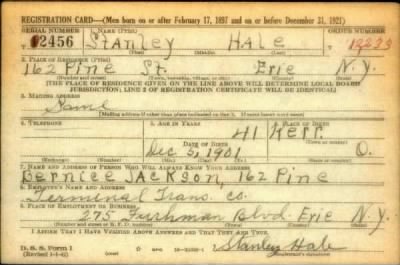 REGISTRATION CARD—(Men born on or after February 17, 1897 and on or before December 31, 1921)
SERIAL NUMBER 1. NAME (Print) ORDER NUMBER
2456 Stanley Hale
(First) (Middle) (Last)
2. PLACE OF RESIDENCE (Print)
162 Pine St. Erie N.Y.
(Number and street) (Town, township, village, or city) (County) (State)
[THE PLACE OF RESIDENCE GIVEN ON THE LINE ABOVE WILL DETERMINE LOCAL BOARD
JURISDICTION; LINE 2 OF REGISTRATION CERTIFICATE WILL BE IDENTICAL]
3. MAILING ADDRESS
Same
[Mailing address if other than place indicated on line 2. If same insert word same]
4. TELEPHONE 5. AGE IN YEARS 6. PLACE OF BIRTH
41 Kerr.
DATE OF BIRTH
Dec 5, 1901 O.
7. NAME AND ADDRESS OF PERSON WHO WILL ALWAYS KNOW YOUR ADDRESS
Bernice Jackson, 162 Pine
8. EMPLOYER'S NAME AND ADDRESS
Terminal Trans. Co.
9. PLACE OF EMPLOYMENT OR BUSINESS
275 Blvd. Erie N.Y.
(Number and street or R. F. D. number) (Town) (County) (State)
I AFFIRM THAT I HAVE VERIFIED ABOVE ANSWERS AND THAT THEY ARE TRUE.
D. S. S. Form 1
Stanley Hale
(Registrant's signature)